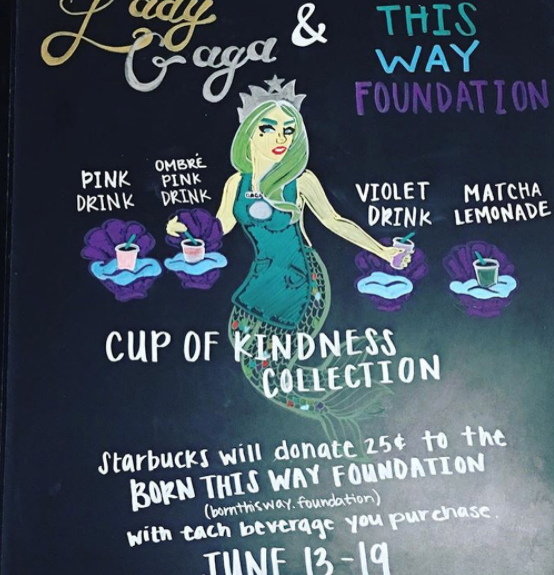 Lady
Gaga
&
THIS
WAY
FOUNDATION
PINK
DRINK
OMBRÉ
PINK
DRINK
VIOLET
DRINK
MATCHA
LEMONADE
CUP OF KINDNESS
COLLECTION
Starbucks will donate 25¢ to the
BORN THIS WAY FOUNDATION
(bornthisway.foundation)
with each beverage you purchase.
JUNE 13-19